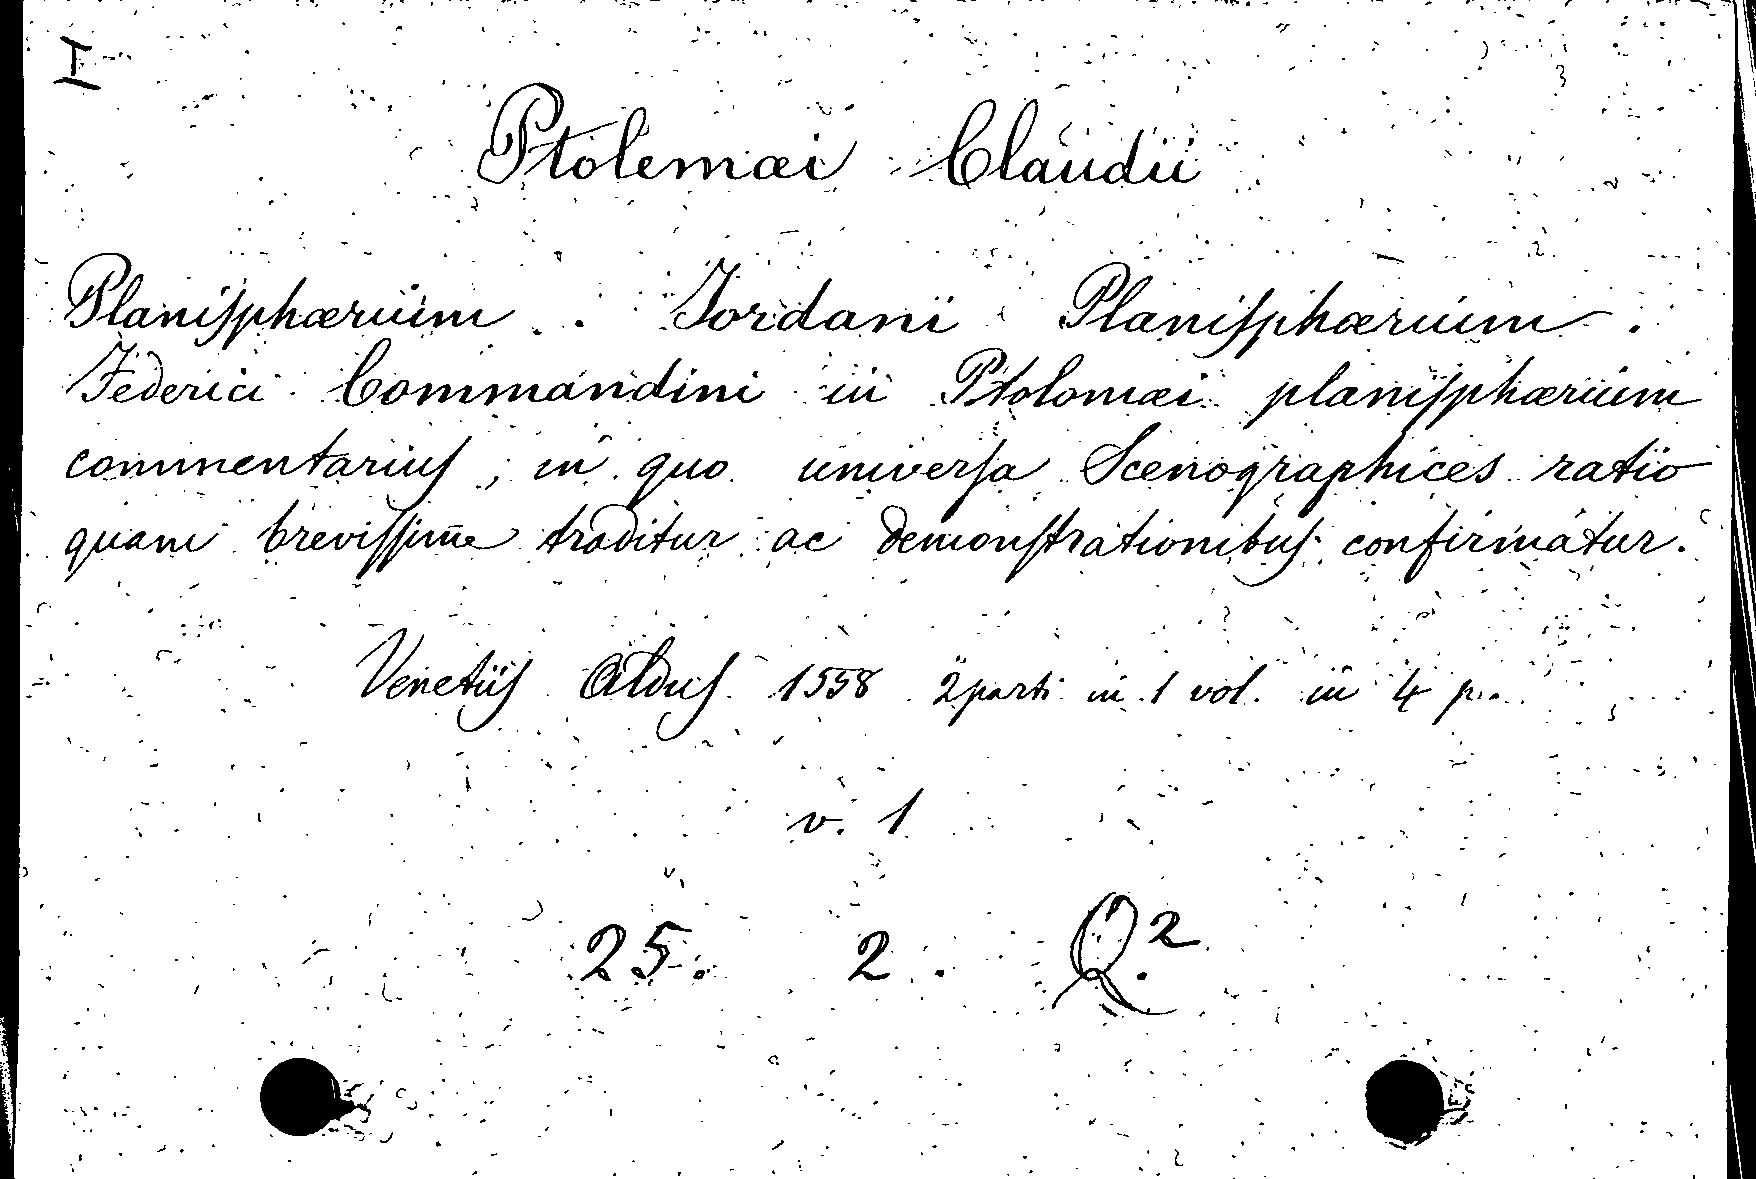 I
Ptolemæi Claudii
Planiſphærium . Jordani Planiſphærium .
Federici Commandini in Ptolomæi planiſphærium
commentariuſ, in quo univerſa Scenographices ratio
quam breviſſime traditur ac demonſtrationibuſ confirmatur.
Venetiiſ Alduſ 1558 2 parti in 1 vol. in 4 p.
v. 1
25. 2. Q.²